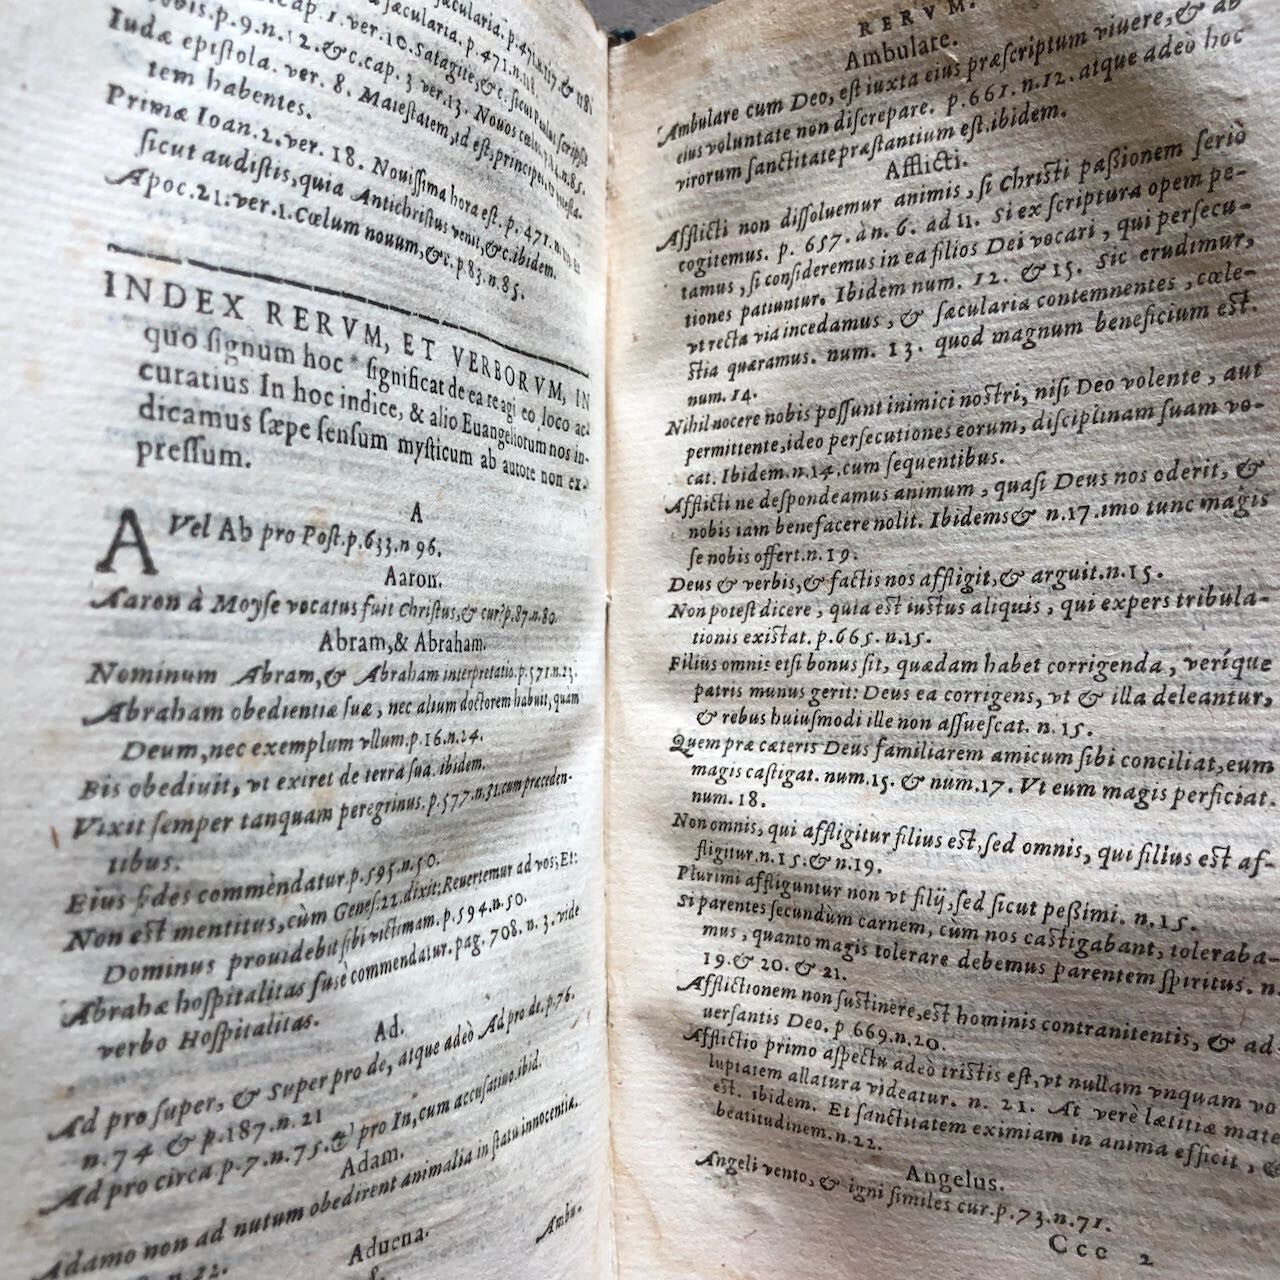 sæcularia. p. 471. n. 117. & 118.
cap. 1. ver. 10. Satagite, &c. sicut Paulus scripsit
vobis. p. 9. n. 12. &c. cap. 3 ver. 13. Nouos cœlos. p. 84. n. 85.
Iudæ epistola. ver. 8. Maiestatem, id est, principes
tem habentes.
Primæ Ioan. 2. ver. 18. Nouissima hora est. p. 471. Et
sicut audistis, quia Antichristus venit, &c. ibidem.
Apoc. 21. ver. 1. Cœlum nouum, &c. p. 83. n. 85.
INDEX RERVM, ET VERBORVM, IN
quo signum hoc * significat de ea re agi eo loco ac-
curatius In hoc indice, & alio Euangeliorum nos in-
dicamus sæpe sensum mysticum ab autore non ex-
pressum.
A
A Vel Ab pro Post. p. 633. n 96.
Aaron.
Aaron à Moyse vocatus fuit Christus, & cur? p. 87. n. 80.
Abram, & Abraham.
Nominum Abram, & Abraham interpretatio. p. 571. n. 23.
Abraham obedientiæ suæ, nec alium doctorem habuit, quam
Deum, nec exemplum vllum. p. 16. n. 24.
Eis obediuit, vt exiret de terra sua. ibidem.
Vixit semper tanquam peregrinus. p. 577. n. 31. cum præceden-
tibus.
Eius fides commendatur. p. 595. n. 50.
Non est mentitus, cùm Genes. 22. dixit; Reuertemur ad vos; Et:
Dominus prouidebit sibi victimam. p. 594. n. 50.
Abrahæ hospitalitas fuse commendatur. pag. 708. n. 3. vide
verbo Hospitalitas.
Ad.
Ad pro super, & Super pro de, atque adeò Ad pro de. p. 76.
n. 74 & p. 187. n. 21
Ad pro circa p. 7. n. 75. & pro In, cum accusatiuo. ibid.
Adam.
Adamo non ad nutum obedirent animalia in statu innocentiæ.
n. 22.
Aduena.
Ambu-
RERVM.
Ambulare.
Ambulare cum Deo, est iuxta eius præscriptum viuere, & ab
eius voluntate non discrepare. p. 661. n. 12. atque adeò hoc
virorum sanctitate præstantium est. ibidem.
Afflicti.
Afflicti non dissoluemur animis, si Christi passionem seriò
cogitemus. p. 657. àn. 6. ad 11. Si ex scriptura opem pe-
tamus, si consideremus in ea filios Dei vocari, qui persecu-
tiones patiuntur. Ibidem num. 12. & 15. Sic erudimur,
vt recta via incedamus, & sæcularia contemnentes, cœle-
stia quæramus. num. 13. quod magnum beneficium est.
num. 14.
Nihil nocere nobis possunt inimici nostri, nisi Deo volente, aut
permittente, ideo persecutiones eorum, disciplinam suam vo-
cat. Ibidem. n. 14. cum sequentibus.
Afflicti ne despondeamus animum, quasi Deus nos oderit, &
nobis iam benefacere nolit. Ibidems & n. 17. imo tunc magis
se nobis offert. n. 19.
Deus & verbis, & factis nos affligit, & arguit. n. 15.
Non potest dicere, quia est iustus aliquis, qui expers tribula-
tionis existat. p. 665. n. 15.
Filius omnis etsi bonus sit, quædam habet corrigenda, veríque
patris munus gerit: Deus ea corrigens, vt & illa deleantur,
& rebus huiusmodi ille non assuescat. n. 15.
Quem præ cæteris Deus familiarem amicum sibi conciliat, eum
magis castigat. num. 15. & num. 17. Vt eum magis perficiat.
num. 18.
Non omnis, qui affligitur filius est, sed omnis, qui filius est af-
fligitur. n. 15. & n. 19.
Plurimi affliguntur non vt filij, sed sicut pessimi. n. 15.
Si parentes secundùm carnem, cùm nos castigabant, toleraba-
mus, quanto magis tolerare debemus parentem spiritus. n.
19. & 20. & 21.
Afflictionem non sustinere, est hominis contranitentis, & ad-
uersantis Deo. p 669. n. 20.
Afflictio primo aspectu adeò tristis est, vt nullam vnquam vo-
luptatem allatura videatur. n. 21. At verè lætitiæ mate
est. ibidem. Et sanctitatem eximiam in anima efficit, &
beatitudinem. n. 22.
Angelus.
Angeli vento, & igni similes cur. p. 73. n. 71.
Ccc 2